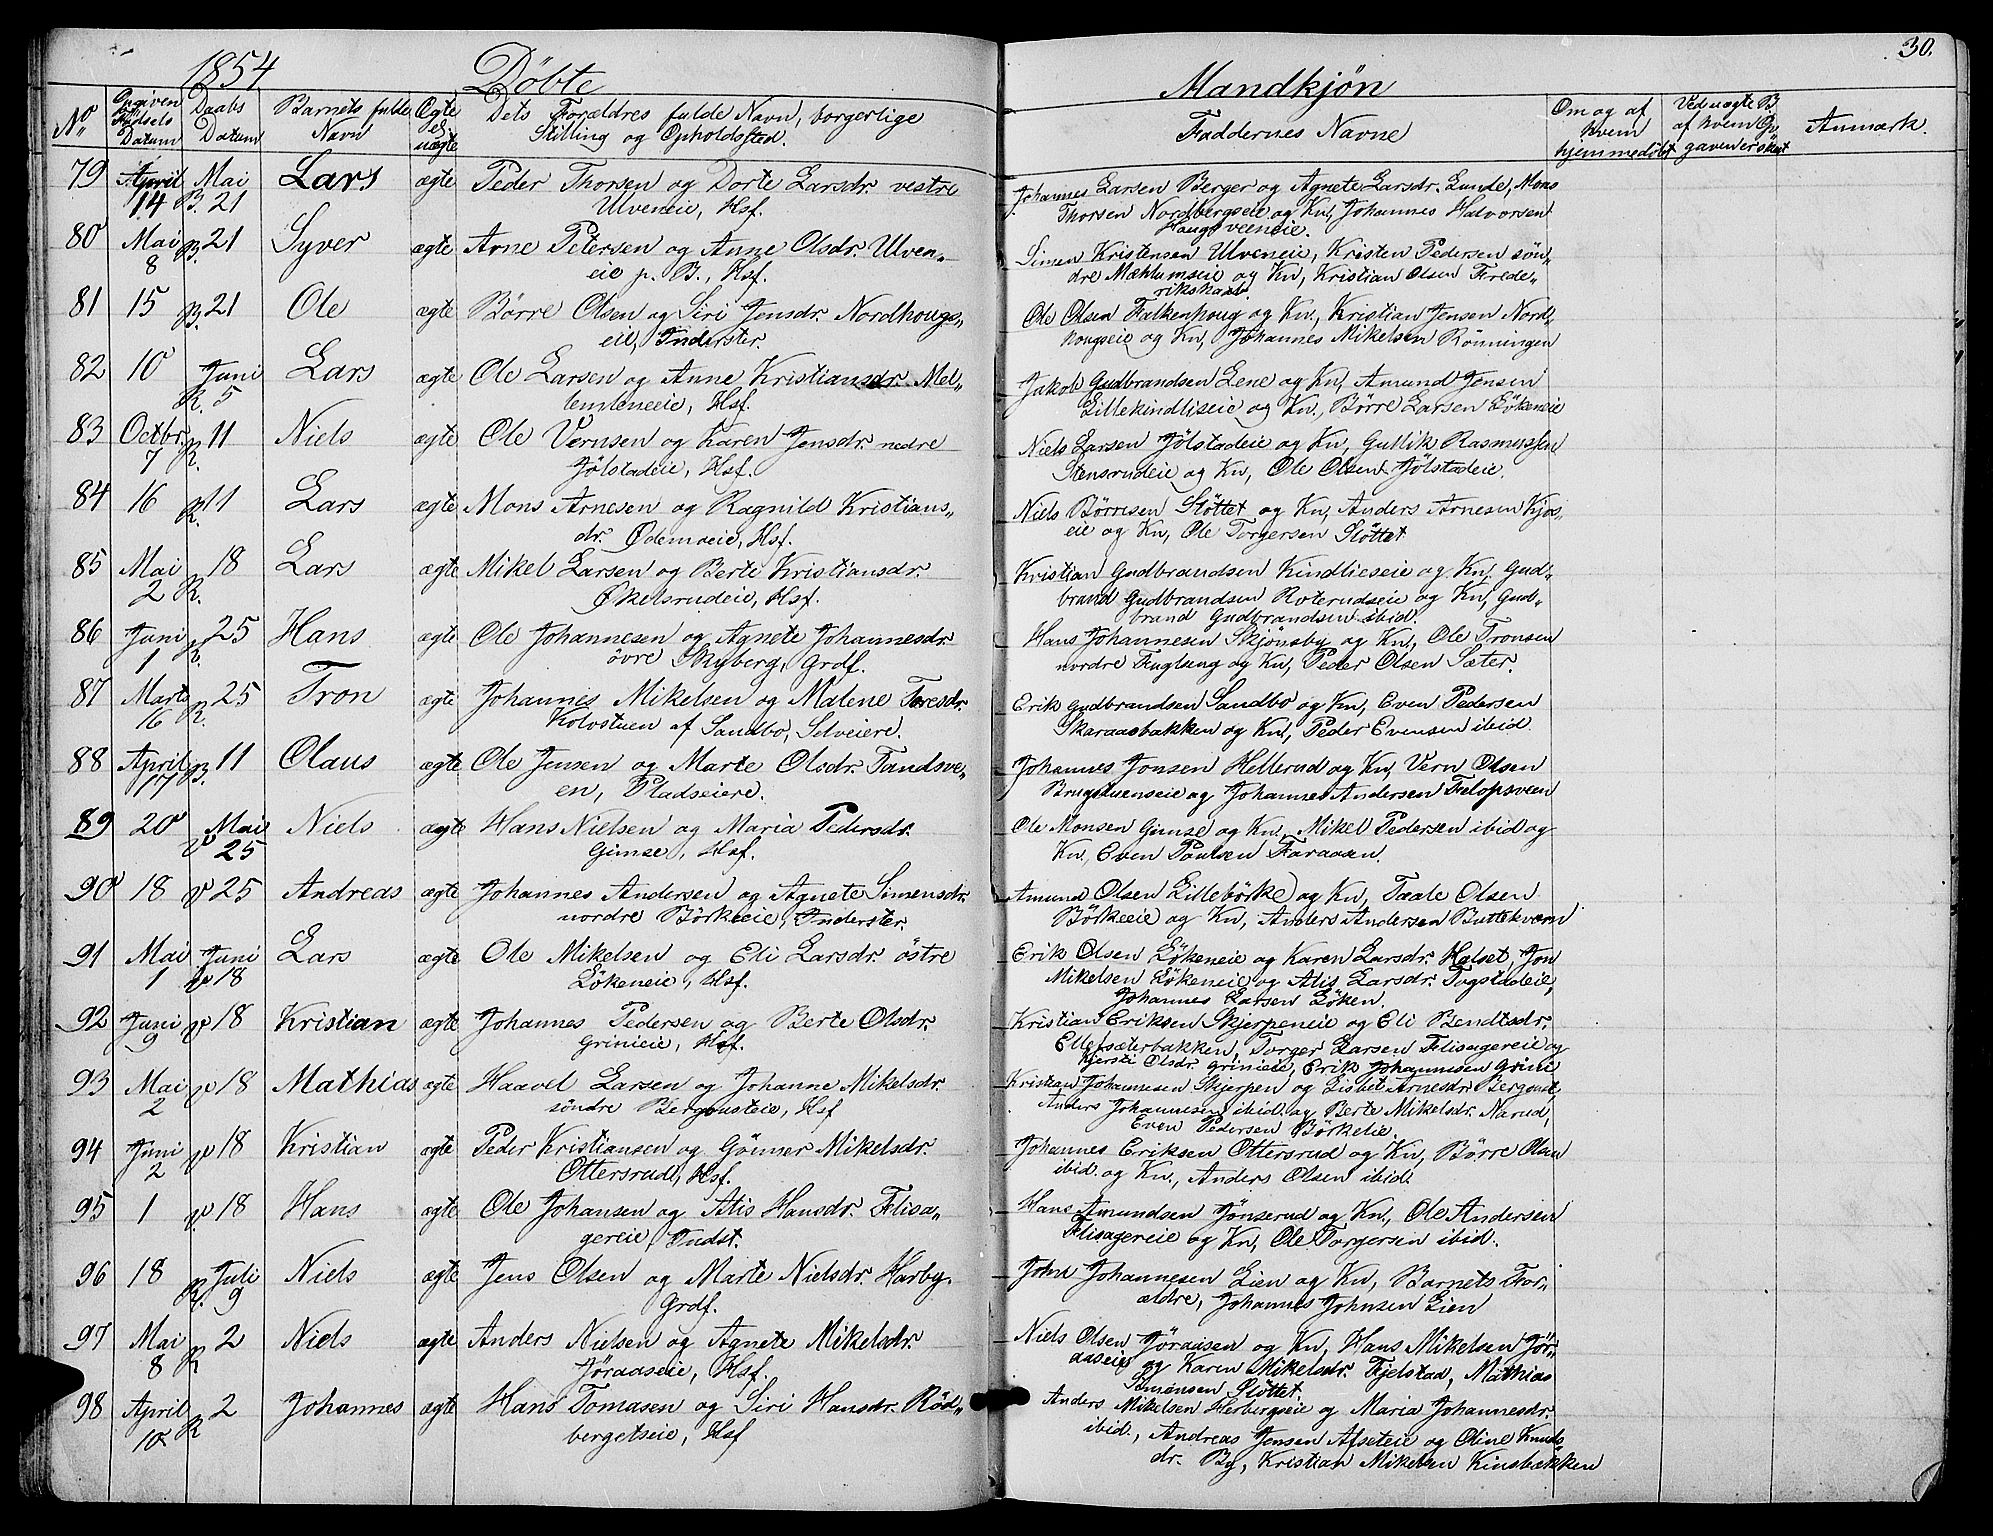 1854. Döbte Mandkjøn 30.
No Angiven Fødsels Datum Daabs Datum Barnets fulde Navn Ægte el. uægte Dets Forældres fulde Navn, borgerlige Stilling og Opholdssted. Faddernes Navne Om og af hvem hjemmedøbt Ved uægte B. af hvem Opgaven er skeet Anmærk.
79 April 14 Mai R. 21 Lars ægte Peder Thorsen og Dorte Larsdr. vestre
Ulveneie, Hsf.
Johannes Larsen Berger og Agnete Larsdr. Lunde, Mons
Thorsen Nordbergseie og Kn, Johannes Halvorsen
Haugsveeneie.
80 Mai 8 R. 21 Syver ægte Arne Petersen og Anne Olsdr. Ulven-
eie p. B., Hsf.
Simen Kristensen Ulveneie, Kristen Pedersen søn-
dre Mæhlumseie og Kn, Kristian Olsen Frede-
rikshald.
81 15 R. 21 Ole ægte Børre Olsen og Siri Jensdr. Nordhougs-
eie, Inderster.
Ole Olsen Falkenhoug og Kn, Kristian Jensen Nord-
hougseie og Kn, Johannes Mikelsen Rönningen
82 10 Juni R. 5 Lars ægte Ole Larsen og Anne Kristiansdr. Mel-
lemleneeie, Hsf.
Jakob Gudbrandsen Lene og Kn, Amund Jensen
Lillekindliseie og Kn, Börre Larsen Lökeneie
83 Octbr. 7 R. 11 Niels ægte Ole Vernsen og Karen Jensdr. nedre
Jölstadeie, Hsf.
Niels Larsen Jölstadeie og Kn, Gullik Rasmussen
Stensrudeie og Kn, Ole Olsen Jölstadeie.
84 16 R. 11 Lars ægte Mons Arnesen og Ragnild Kristians-
dr. Ødemoeie, Hsf.
Niels Börrisen Slöttet og Kn, Anders Arnesen Kjos-
eie og Kn, Ole Torgersen Slöttet
85 Mai 2 R. 18 Lars ægte Mikel Larsen og Berte Kristiansdr.
Økelsrudeie, Hsf.
Kristian Gudbrandsen Kindlieseie og Kn. Gud-
brand Gudbrandsen Roterudseie og Kn, Gud-
brand Gudbrandsen ibid.
86 Juni 1 R. 25 Hans ægte Ole Johannesen og Agnete Johannesdr.
övre Skyberg, Grdf.
Hans Johannesen Skjönsby og Kn, Ole Tronsen
nordre Fuglseng og Kn, Peder Olsen Sæter.
87 Marts 16 R. 25 Tron ægte Johannes Mikelsen og Malene Toresdr.
Kolvstuen af Sandbo, Selveiere.
Erik Gudbrandsen Sandbo og Kn, Even Pedersen
Skaraasbakken og Kn, Peder Evensen ibid.
88 April 17 B. 11 Olaus ægte Ole Jensen og Marte Olsdr. Tandsve-
en, Pladseiere.
Johannes Jonsen Hellerud og Kn, Vern Olsen
Brugstuenseie og Johannes Andersen Felopsveen
89 20 Mai V 25 Niels ægte Hans Nielsen og Maria Pedersdr.
Gimse, Hsf.
Ole Monsen Gimse og Kn, Mikel Pedersen ibid og
Kn, Even Paulsen Faraasen.
90 18 V 25 Andreas ægte Johannes Andersen og Agnete Simensdr.
nordre Börkeeie, Inderster.
Amund Olsen Lillebörke og Kn, Taale Olsen
Börkeeie og Kn, Anders Andersen Buttekværn
91 Mai 1 Juni V 18 Lars ægte Ole Mikelsen og Eli Larsdr. östre
Lökeneie, Hsf.
Erik Olsen Lökeneie og Karen Larsdr. Halset, Jon
Mikelsen Lökeneie og Alis Larsdr. Togstadeie,
Johannes Larsen Löken.
92 Juni 9 V 18 Kristian ægte Johannes Pedersen og Berte Olsdr.
Grinieie, Hsf.
Kristian Eriksen Skjerpeneie og Eli Bendtsdr.
Ellefsæterbakken, Torger Larsen Flisagereie og
Kjersti Olsdr. Grinieie, Erik Johannesen Grini
93 Mai 2 V 18 Mathias ægte Haavel Larsen og Johanne Mikelsdr
söndre Bergousteie, Hsf
Kristian Johannesen Skjerpen og Lisbet Arnesdr. Bergoust
Anders Johannesen ibid. og Berte Mikelsdr. Narud,
Even Pedersen Börkeeie.
94 Juni 2 V 18 Kristian ægte Peder Kristiansen og Gönner Mikelsdr.
Ottersrud, Hsf.
Johannes Eriksen Ottersrud og Kn, Börre Olsen
ibid. og Kn., Anders Olsen ibid.
95 1 V 18 Hans ægte Ole Johansen og Alis Hansdr. Flisa-
gereie, Indst.
Hans Amundsen Jönserud og Kn., Ole Andersen
Flisagereie og Kn, Ole Torgersen ibid.
96 18 Juli R. 9 Niels ægte Jens Olsen og Marte Nielsdr. Harby,
Grdf.
John Johannesen Lien og Kn, Barnets For-
ældre, Johannes Johnsen Lien
97 Mai 8 R 2 Niels ægte Anders Nielsen og Agnete Mikelsdr.
Jöraaseie, Hsf.
Niels Olsen Jöraasen og Kn, Hans Mikelsen Jör-
aaseie og Karen Mikelsdr. Fjelstad, Mathias
Simensen Slöttet.
98 April 10 R 2 Johannes ægte Hans Tomasen og Siri Hansdr. Röd-
bergetseie, Hsf
Anders Mikelsen Herbergseie og Maria Johannesdr.
ibid., Andreas Jensen Afseteie og Oline Knuds-
dr. By, Kristian Mikelsen Kinsbakken